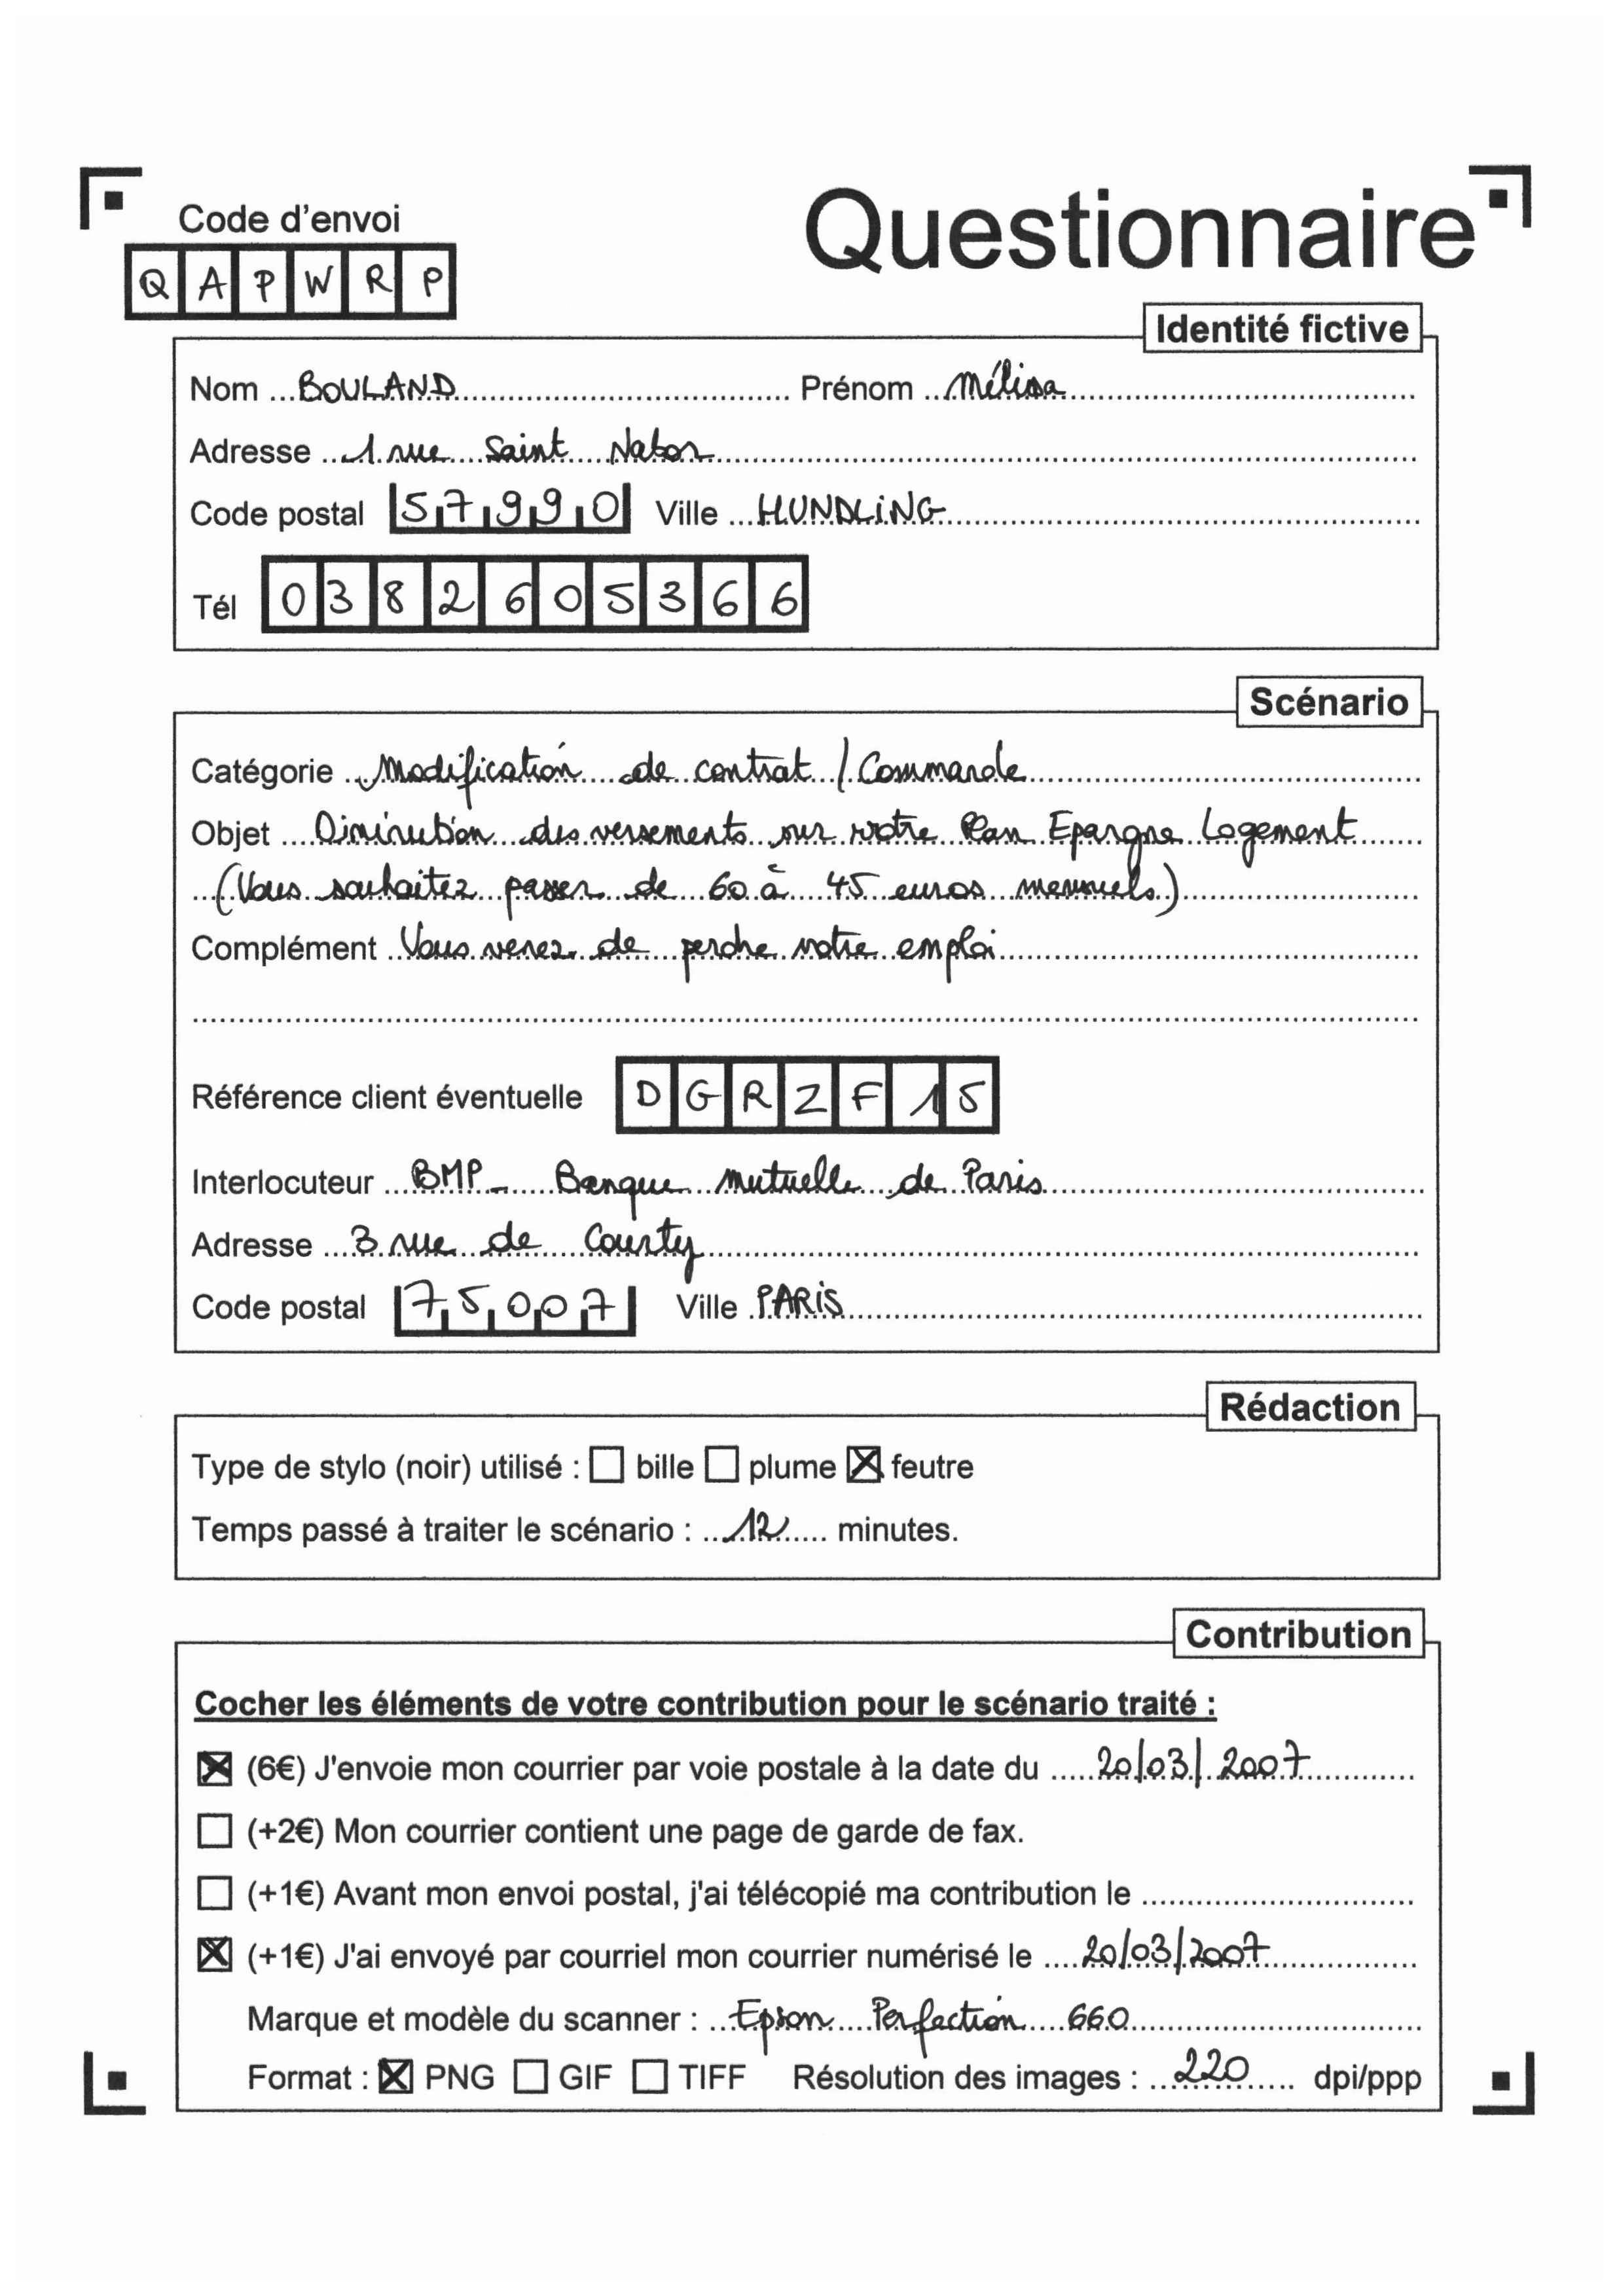 Code d'envoi
Questionnaire
QAPWRP
Identité fictive
Nom BOULAND Prénom Mélissa
Adresse 1 rue Saint Nabor
Code postal 57990 Ville HUNDLING
Tél 0382605366
Scénario
Catégorie Modification de contrat / Commande
Objet Diminution des versements sur votre Plan Epargne Logement
(Vous souhaitez passer de 60 à 45 euros mensuels)
Complément Vous venez de perdre votre emploi
Référence client éventuelle DGRZF15
Interlocuteur BMP - Banque Mutuelle de Paris
Adresse 3 rue de Courty
Code postal 75007 Ville PARIS
Rédaction
Type de stylo (noir) utilisé : bille plume feutre
Temps passé à traiter le scénario : 12 minutes.
Contribution
Cocher les éléments de votre contribution pour le scénario traité :
(6€) J'envoie mon courrier par voie postale à la date du 20/03/2007
(+2€) Mon courrier contient une page de garde de fax.
(+1€) Avant mon envoi postal, j'ai télécopié ma contribution le
(+1€) J'ai envoyé par courriel mon courrier numérisé le 20/03/2007
Marque et modèle du scanner : Epson Perfection 660
Format : PNG GIF TIFF Résolution des images : 220 dpi/ppp